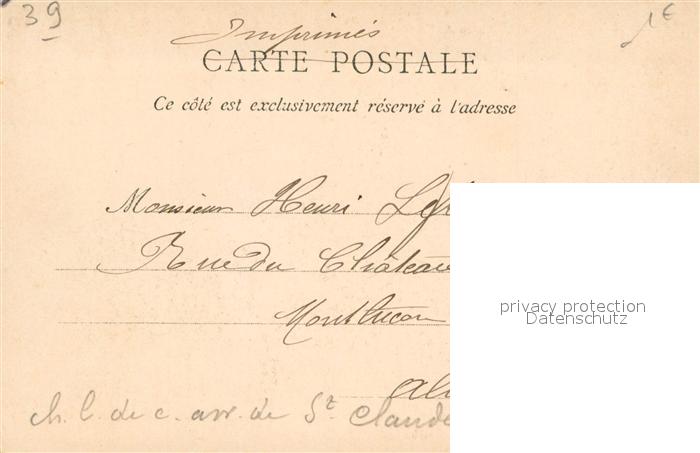 39
1€
Imprimés
CARTE POSTALE
Ce côté est exclusivement réservé à l'adresse
Monsieur Henri
Rue du Château
Montluçon
privacy protection
Datenschutz
ch. l. de c. arr. de St Claude